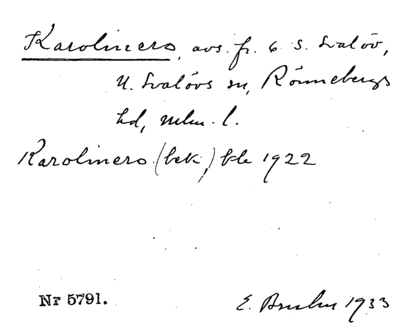 Karolinero, avs. fr. 6 S. Svalöv,
N. Svalövs sn, Rönnebergs
hd, Mlm. l.
Karolinero (bek.) ble 1922
Nr 5791.
E. Bruhn 1933